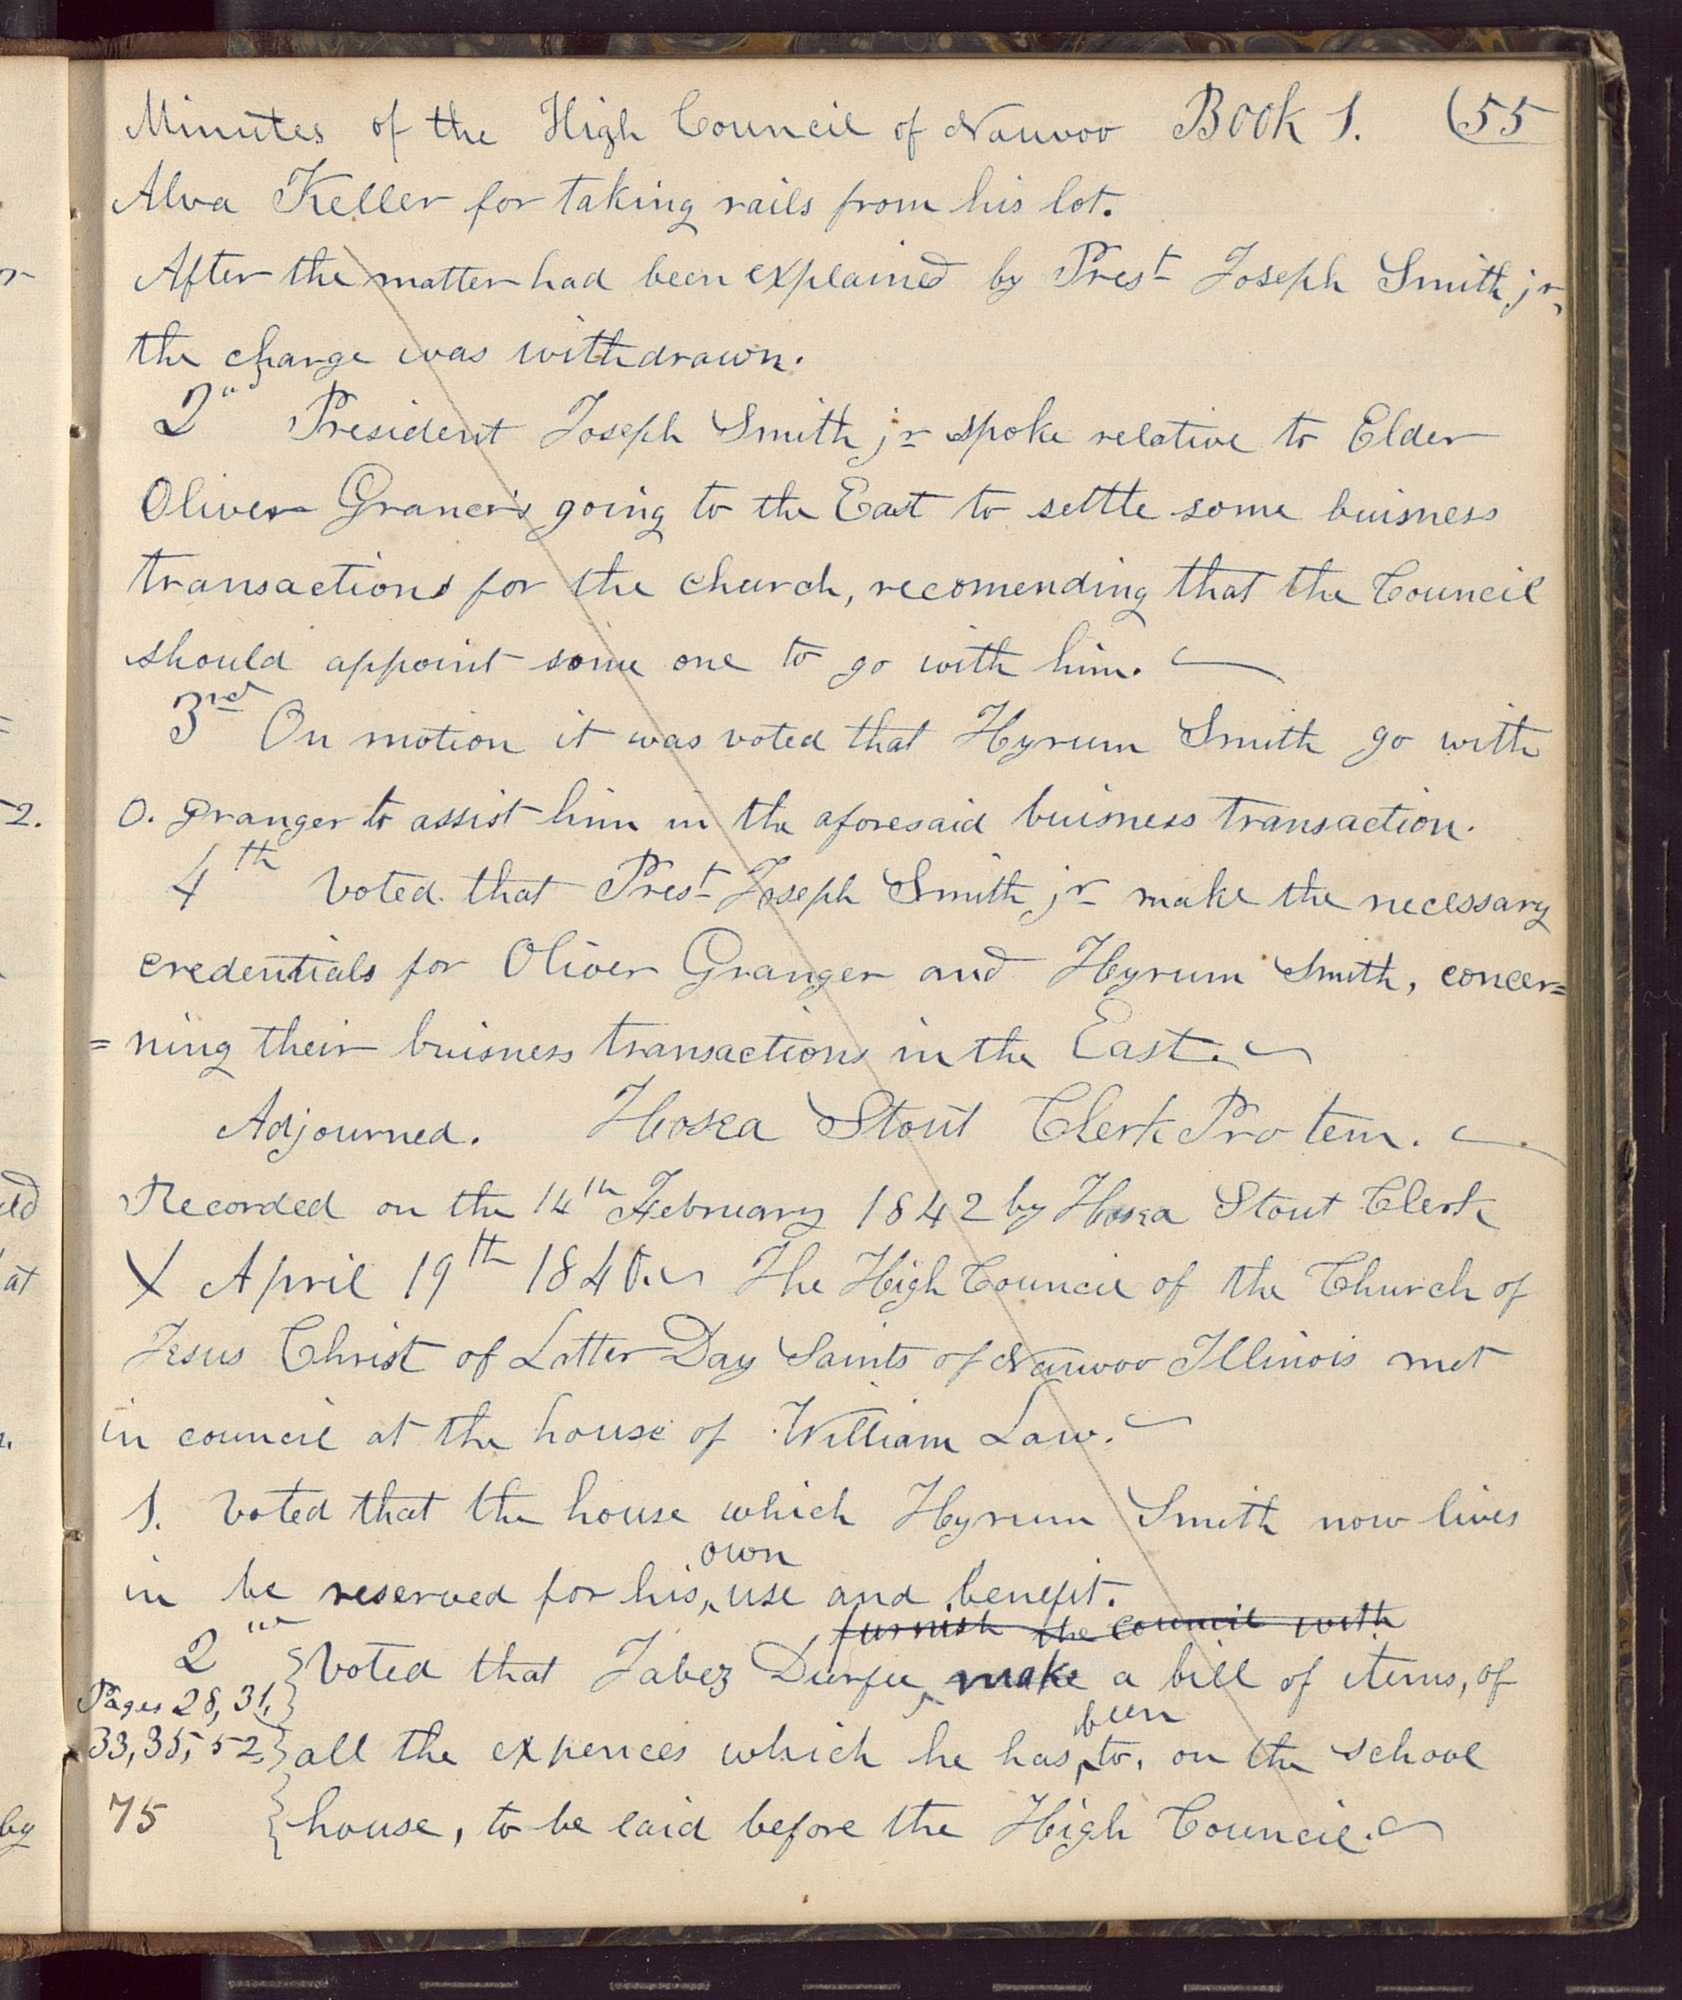 Minutes of the High Council of Nauvoo Book 1. (55
Alva Keller for taking rails from his lot.
After the matter had been explained by Prest Joseph Smith jr,
the charge was withdrawn.
2nd President Joseph Smith jr spoke relative to Elder
Oliver Graner's going to the East to settle some buisness
transactions for the church, recomending that the Council
should appoint some one to go with him.
3rd On motion it was voted that Hyrum Smith go with
O. Granger to assist him in the aforesaid buisness transaction.
4th Voted that Prest Joseph Smith jr make the necessary
credentials for Oliver Granger and Hyrum Smith, concer=
=ning their buisness transactions in the East.
Adjourned. Hosea Stout Clerk Pro tem.
Recorded on the 14th February 1842 by Hosea Stout Clerk
X April 19th 1840. The High Council of the Church of
Jesus Christ of Latter Day Saints of Nauvoo Illinois met
in council at the house of William Law.
1. Voted that the house which Hyrum Smith now lives
own
in be reserved for his use and benefit.
furnish the council with
2nd Voted that Jabez Durfee make a bill of items, of
Pages 28, 31,
been
33, 35, 52, all the expences which he has to, on the school
75 house, to be laid before the High Council.
by